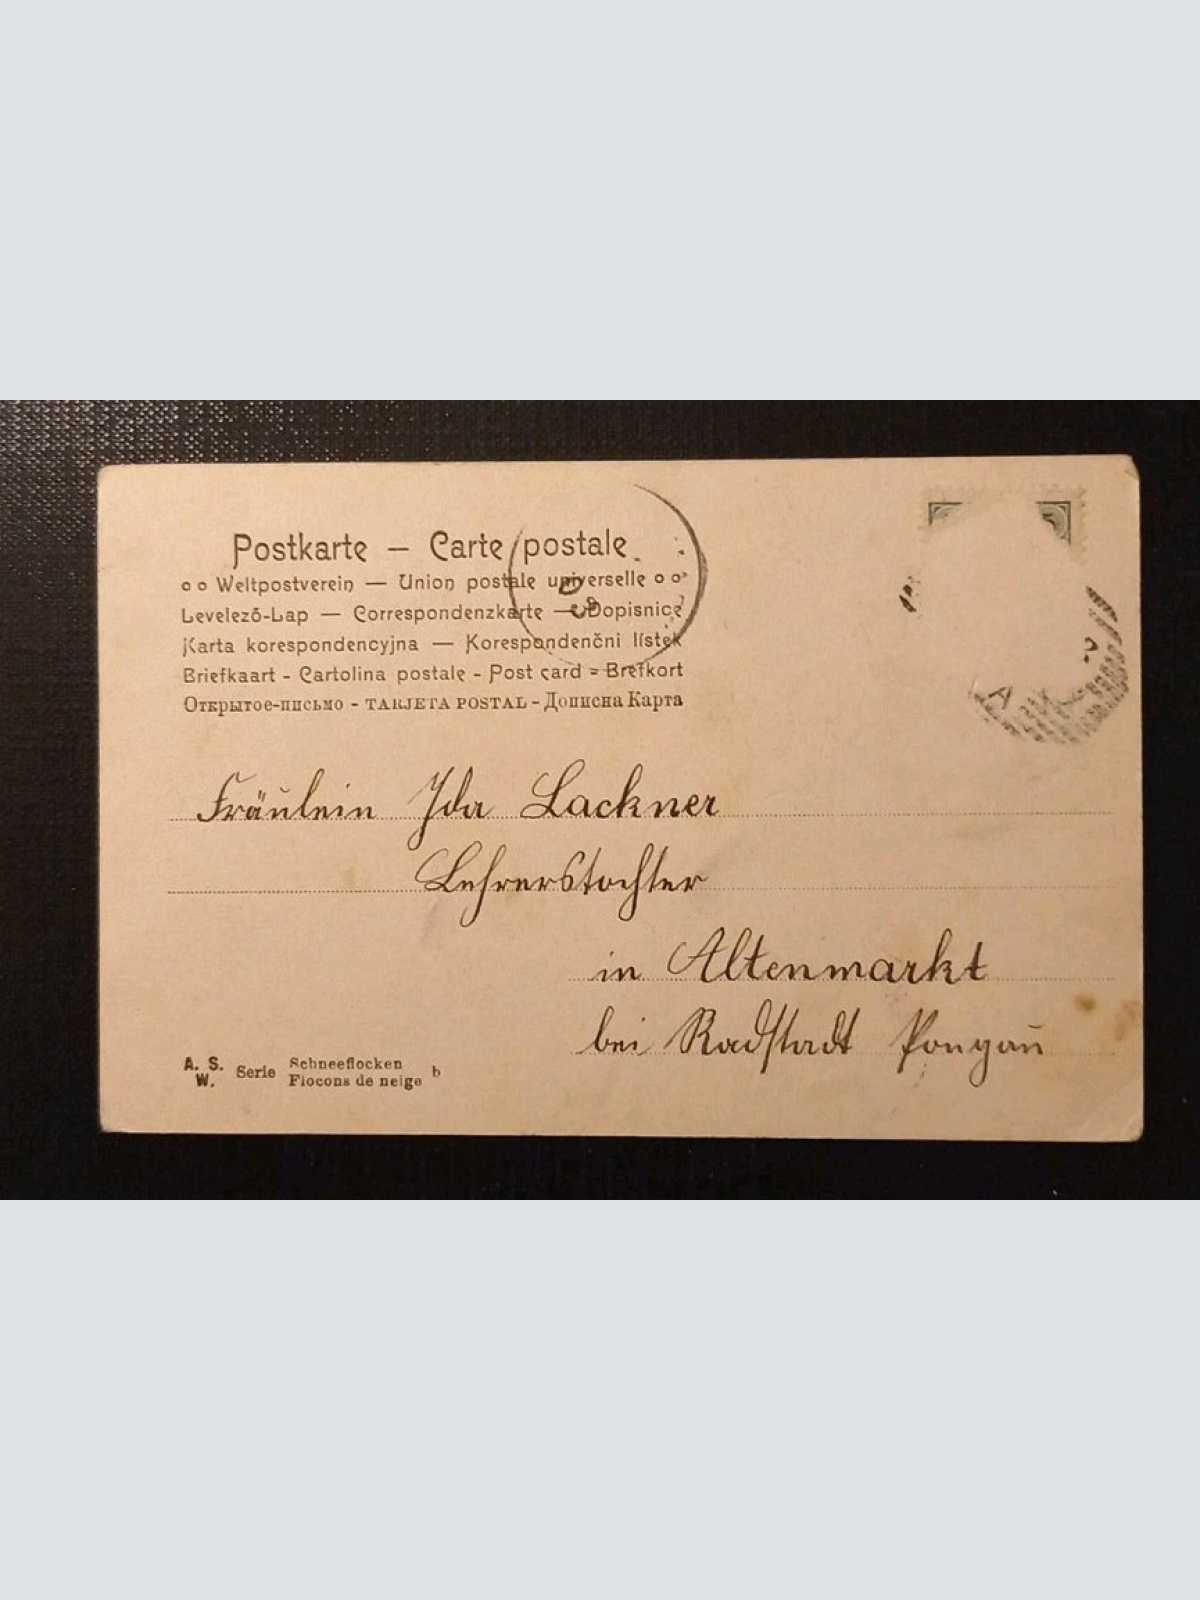 Postkarte — Carte postale
Weltpostverein — Union postale universelle
Levelező-Lap — Correspondenzkarte — Dopisnice
Karta korespondencyjna — Korespondenčni lístek
Briefkaart - Cartolina postale - Post card - Brefkort
Открытое-письмо - TARJETA POSTAL - Дописна Карта
Fräulein Ida Lackner
Lehrerstochter
in Altenmarkt
bei Radstadt Pongau
A. S. W. Serie Schneeflocken b
Flocons de neige